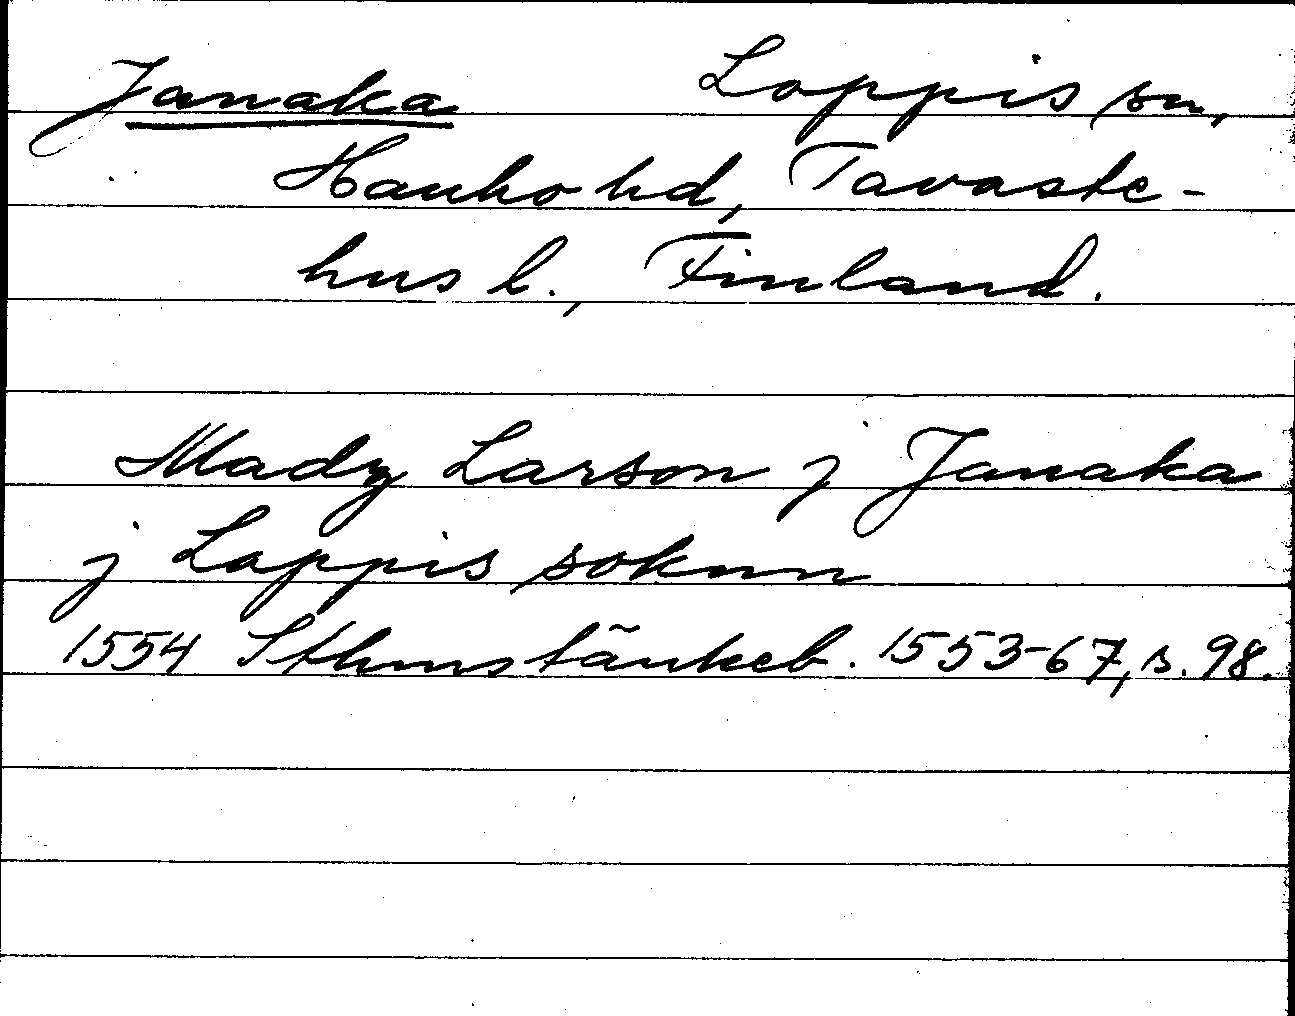 Janaka Loppis sn,
Hauho hd, Tavaste-
hus l., Finland.
Madz Larson j Janaka
j Loppis soknn
1554 Sthms tänkeb. 1553-67, s. 98.